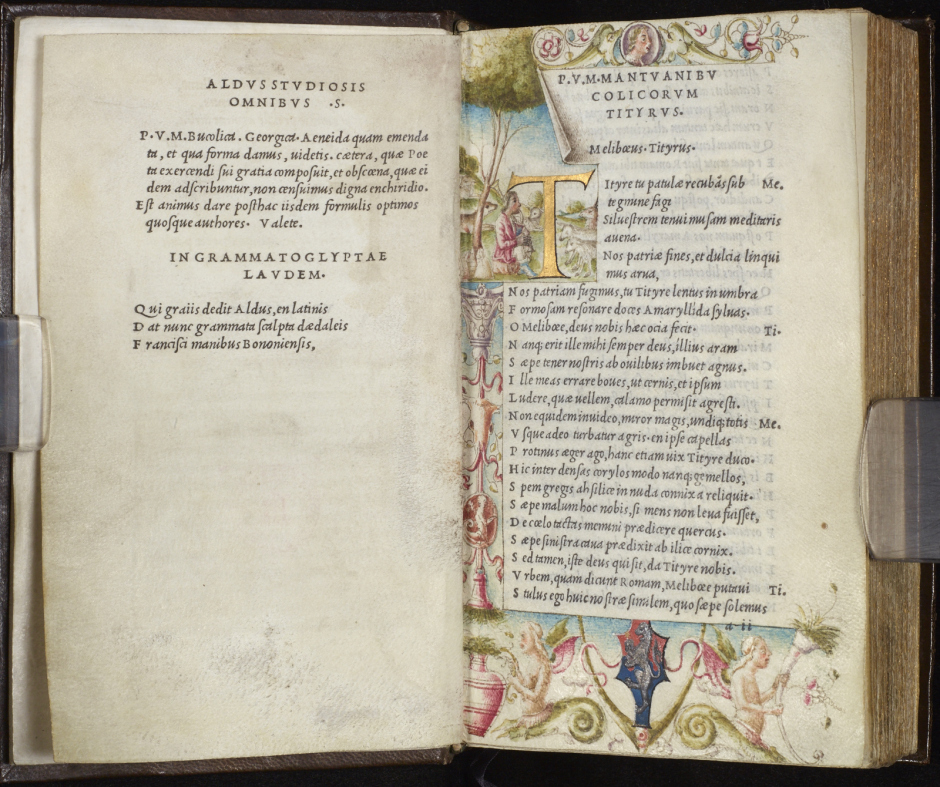 ALDVS STVDIOSIS
OMNIBVS ·S·
P·V·M· Bucolica· Georgica· Aeneida quam emenda
ta, et qua forma damus, uidetis. cætera, quæ Poe
ta exercendi sui gratia composuit, et obscœna, quæ ei
dem adscribuntur, non censuimus digna enchiridio.
Est animus dare posthac iisdem formulis optimos
quosque authores· Valete.
IN GRAMMATOGLYPTAE
LAVDEM·
Qui graiis dedit Aldus, en latinis
Dat nunc grammata scalpta dædaleis
Francisci manibus Bononiensis,
P·V·M·MANTVANI BV
COLICORVM
TITYRVS·
Melibœus· Tityrus·
TItyre tu patulæ recubās sub Me.
tegmine fagi
Siluestrem tenui musam meditaris
auena·
Nos patriæ fines, et dulcia linqui
mus arua,
Nos patriam fugimus, tu Tityre lentus in umbra
Formosam resonare doces Amaryllida syluas·
O Melibœe, deus nobis hæc ocia fecit· Ti.
Nanq; erit ille mihi semper deus, illius aram
Sæpe tener nostris ab ouilibus imbuet agnus.
Ille meas errare boues, ut cernis, et ipsum
Ludere, quæ uellem, calamo permisit agresti.
Non equidem inuideo, miror magis, undiq; totis Me.
Vsque adeo turbatur agris· en ipse capellas
Protinus æger ago, hanc etiam uix Tityre duco·
Hic inter densas corylos modo nanq; gemellos,
Spem gregis ah silice in nuda connixa reliquit·
Sæpe malum hoc nobis, si mens non leua fuisset,
De cœlo tactas memini prædicere quercus·
Sæpe sinistra caua prædixit ab ilice cornix.
Sed tamen, iste deus qui sit, da Tityre nobis.
Vrbem, quam dicunt Romam, Melibœe putaui Ti.
Stulus ego huic nostræ similem, quo sæpe solemus
a ii